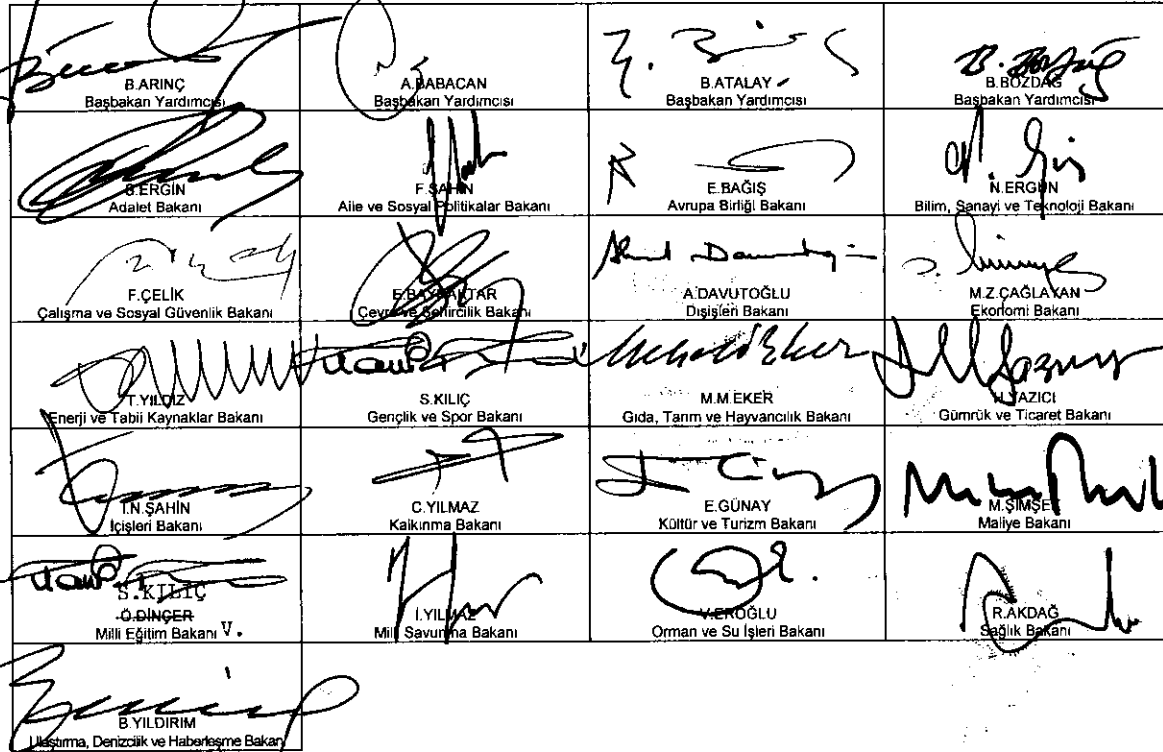 B.ARINÇ
Başbakan Yardımcısı
A.BABACAN
Başbakan Yardımcısı
B.ATALAY
Başbakan Yardımcısı
B.BOZDAĞ
Başbakan Yardımcısı
S.ERGİN
Adalet Bakanı
F.ŞAHİN
Aile ve Sosyal Politikalar Bakanı
E.BAĞIŞ
Avrupa Birliği Bakanı
N.ERGÜN
Bilim, Sanayi ve Teknoloji Bakanı
F.ÇELİK
Çalışma ve Sosyal Güvenlik Bakanı
E.BAYRAKTAR
Çevre ve Şehircilik Bakanı
A.DAVUTOĞLU
Dışişleri Bakanı
M.Z.ÇAĞLAYAN
Ekonomi Bakanı
T.YILDIZ
Enerji ve Tabii Kaynaklar Bakanı
S.KILIÇ
Gençlik ve Spor Bakanı
M.M.EKER
Gıda, Tarım ve Hayvancılık Bakanı
H.YAZICI
Gümrük ve Ticaret Bakanı
İ.N.ŞAHİN
İçişleri Bakanı
C.YILMAZ
Kalkınma Bakanı
E.GÜNAY
Kültür ve Turizm Bakanı
M.ŞİMŞEK
Maliye Bakanı
S.KILIÇ
Ö.DİNÇER
Milli Eğitim Bakanı V.
İ.YILMAZ
Milli Savunma Bakanı
V.EROĞLU
Orman ve Su İşleri Bakanı
R.AKDAĞ
Sağlık Bakanı
B.YILDIRIM
Ulaştırma, Denizcilik ve Haberleşme Bakanı